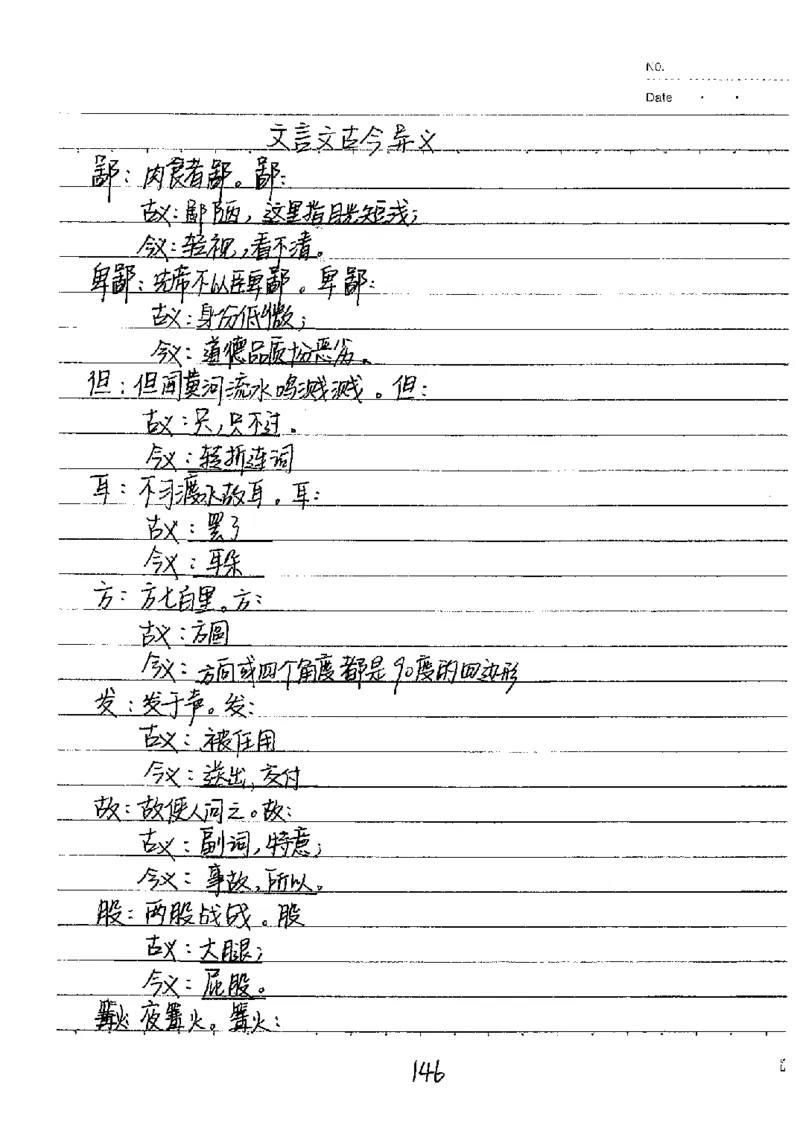 NO.
Date
文言文古今异义
鄙：肉食者鄙。鄙：
古义：鄙陋，这里指目光短浅；
今义：轻视，看不清。
卑鄙：先帝不以臣卑鄙。卑鄙：
古义：身份低微；
今义：道德品质恶劣。
但：但闻黄河流水鸣溅溅。但：
古义：只，只不过。
今义：转折连词
耳：不习渡水故耳。耳：
古义：罢了
今义：耳朵
方：方七百里。方：
古义：方圆
今义：方向或四个角度都是90度的四边形
发：发于声。发：
古义：被任用
今义：送出，交付
故：故使人问之。故：
古义：副词，特意；
今义：事故，所以。
股：两股战战。股
古义：大腿；
今义：屁股。
篝火 夜篝火。篝火：
146